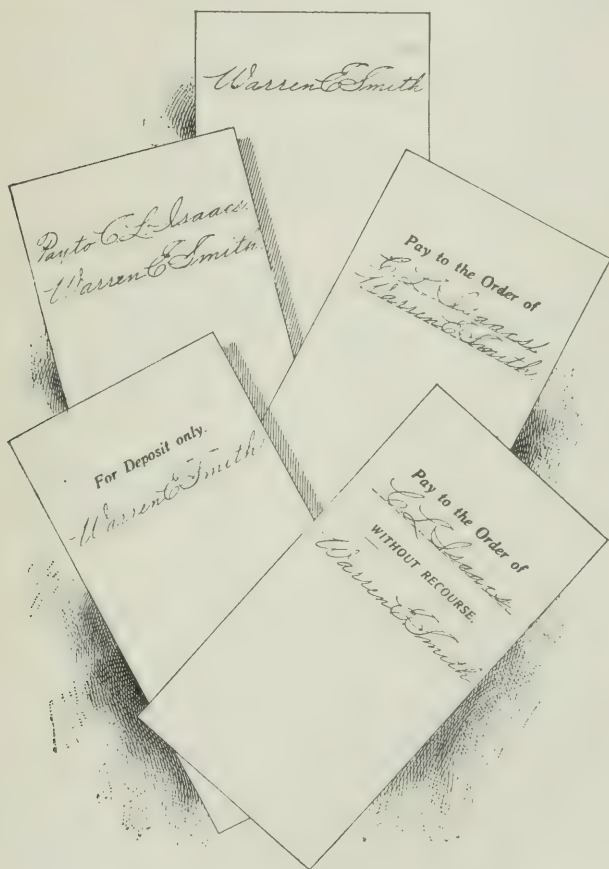 Warren E Smith
Pay to C. L. Isaacs.
Warren E Smith.
Pay to the Order of
C. L. Isaacs.
Warren E Smith.
For Deposit only.
Warren E Smith.
Pay to the Order of
C. L. Isaacs.
WITHOUT RECOURSE.
Warren E Smith